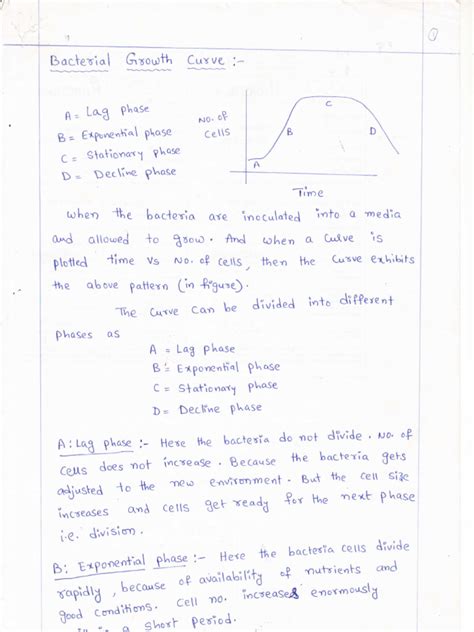 Bacterial Growth Curve :-
A = Lag phase
B = Exponential phase
C = Stationary phase
D = Decline phase
No. of
cells
A
B
C
D
Time
When the bacteria are inoculated into a media
and allowed to grow. And when a curve is
plotted time vs No. of cells, then the curve exhibits
the above pattern (in figure).
The curve can be divided into different
phases as
A = Lag phase
B = Exponential phase
C = Stationary phase
D = Decline phase
A: Lag phase :- Here the bacteria do not divide. No. of
cells does not increase. Because the bacteria gets
adjusted to the new environment. But the cell size
increases and cells get ready for the next phase
i.e. division.
B: Exponential phase :- Here the bacteria cells divide
rapidly, because of availability of nutrients and
good conditions. Cell no. increases enormously
a short period.